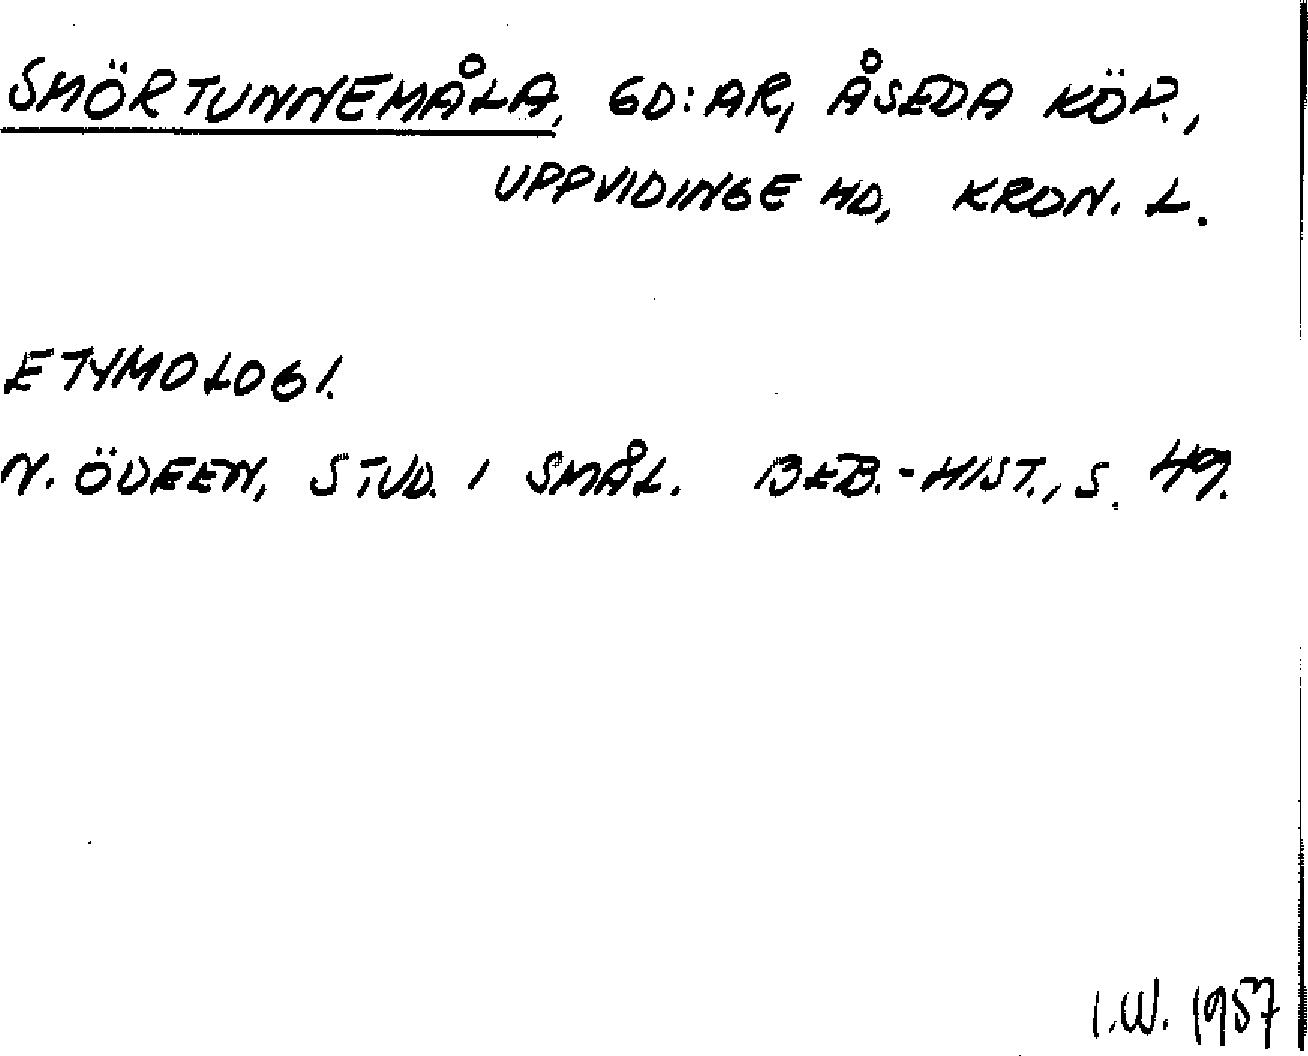 SMÖRTUNNEMÅLA, GD:AR, ÅSEDA KÖP.,
UPPVIDINGE HD, KRON. L.
ETYMOLOGI.
N. ÖDEEN, STUD. I SMÅL. BEB.-HIST., S. 49.
I.W. 1957